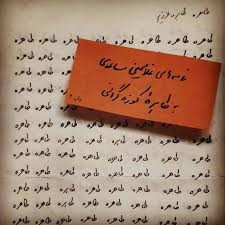 طاهره طاهره عزیزم
طاهره طاهره طاهره طاهره طاهره طاهره طاهره
نامه‌های غلامحسین ساعدی
به طاهره کوزه‌گرانی
طاهره طاهره طاهره
طاهره طاهره طاهره
طاهره طاهره طاهره
طاهره طاهره طاهره
طاهره طاهره طاهره طاهره طاهره طاهره طاهره
طاهره طاهره طاهره طاهره طاهره طاهره طاهره
طاهره طاهره طاهره طاهره طاهره طاهره طاهره
طاهره طاهره طاهره طاهره طاهره طاهره طاهره
طاهره طاهره طاهره طاهره طاهره طاهره طاهره